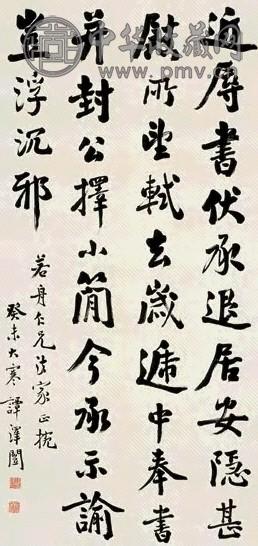 近辱書伏承退居安隱甚
慰所望軾去歲遞中奉書
并封公擇小簡今承示諭
豈浮沉邪
若舟仁兄法家正捥
癸未大寒譚澤闓
中华收藏网
www.pmv.cn